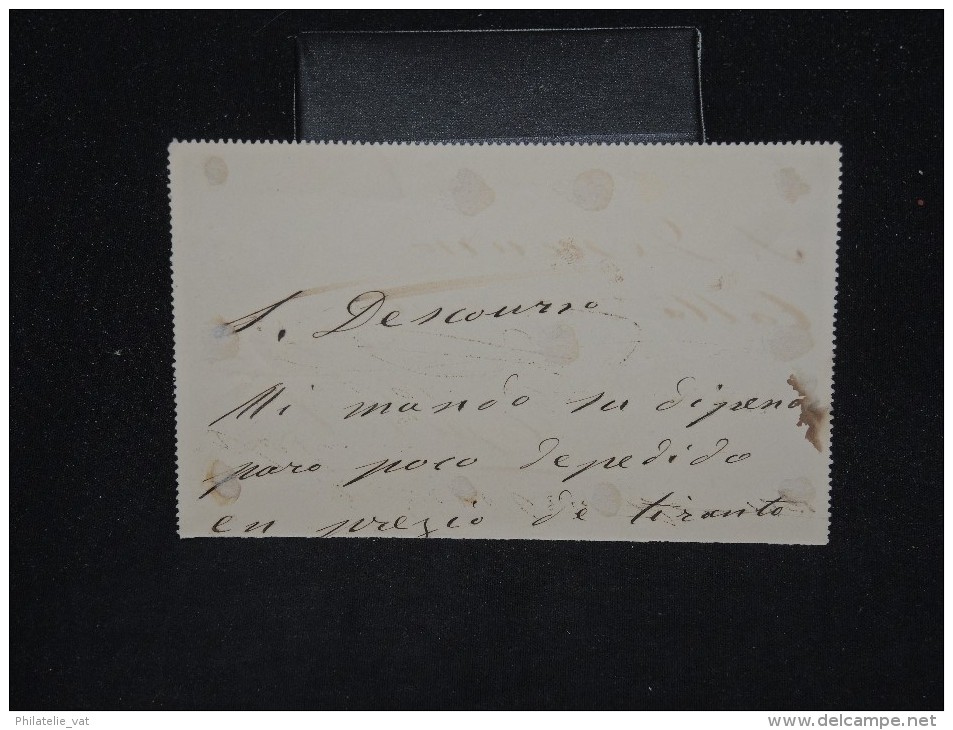 S. Descourso
Mi mando su
paro poco de pedido
en prezio de tiranto
Philatelie_vat
delcampe.net